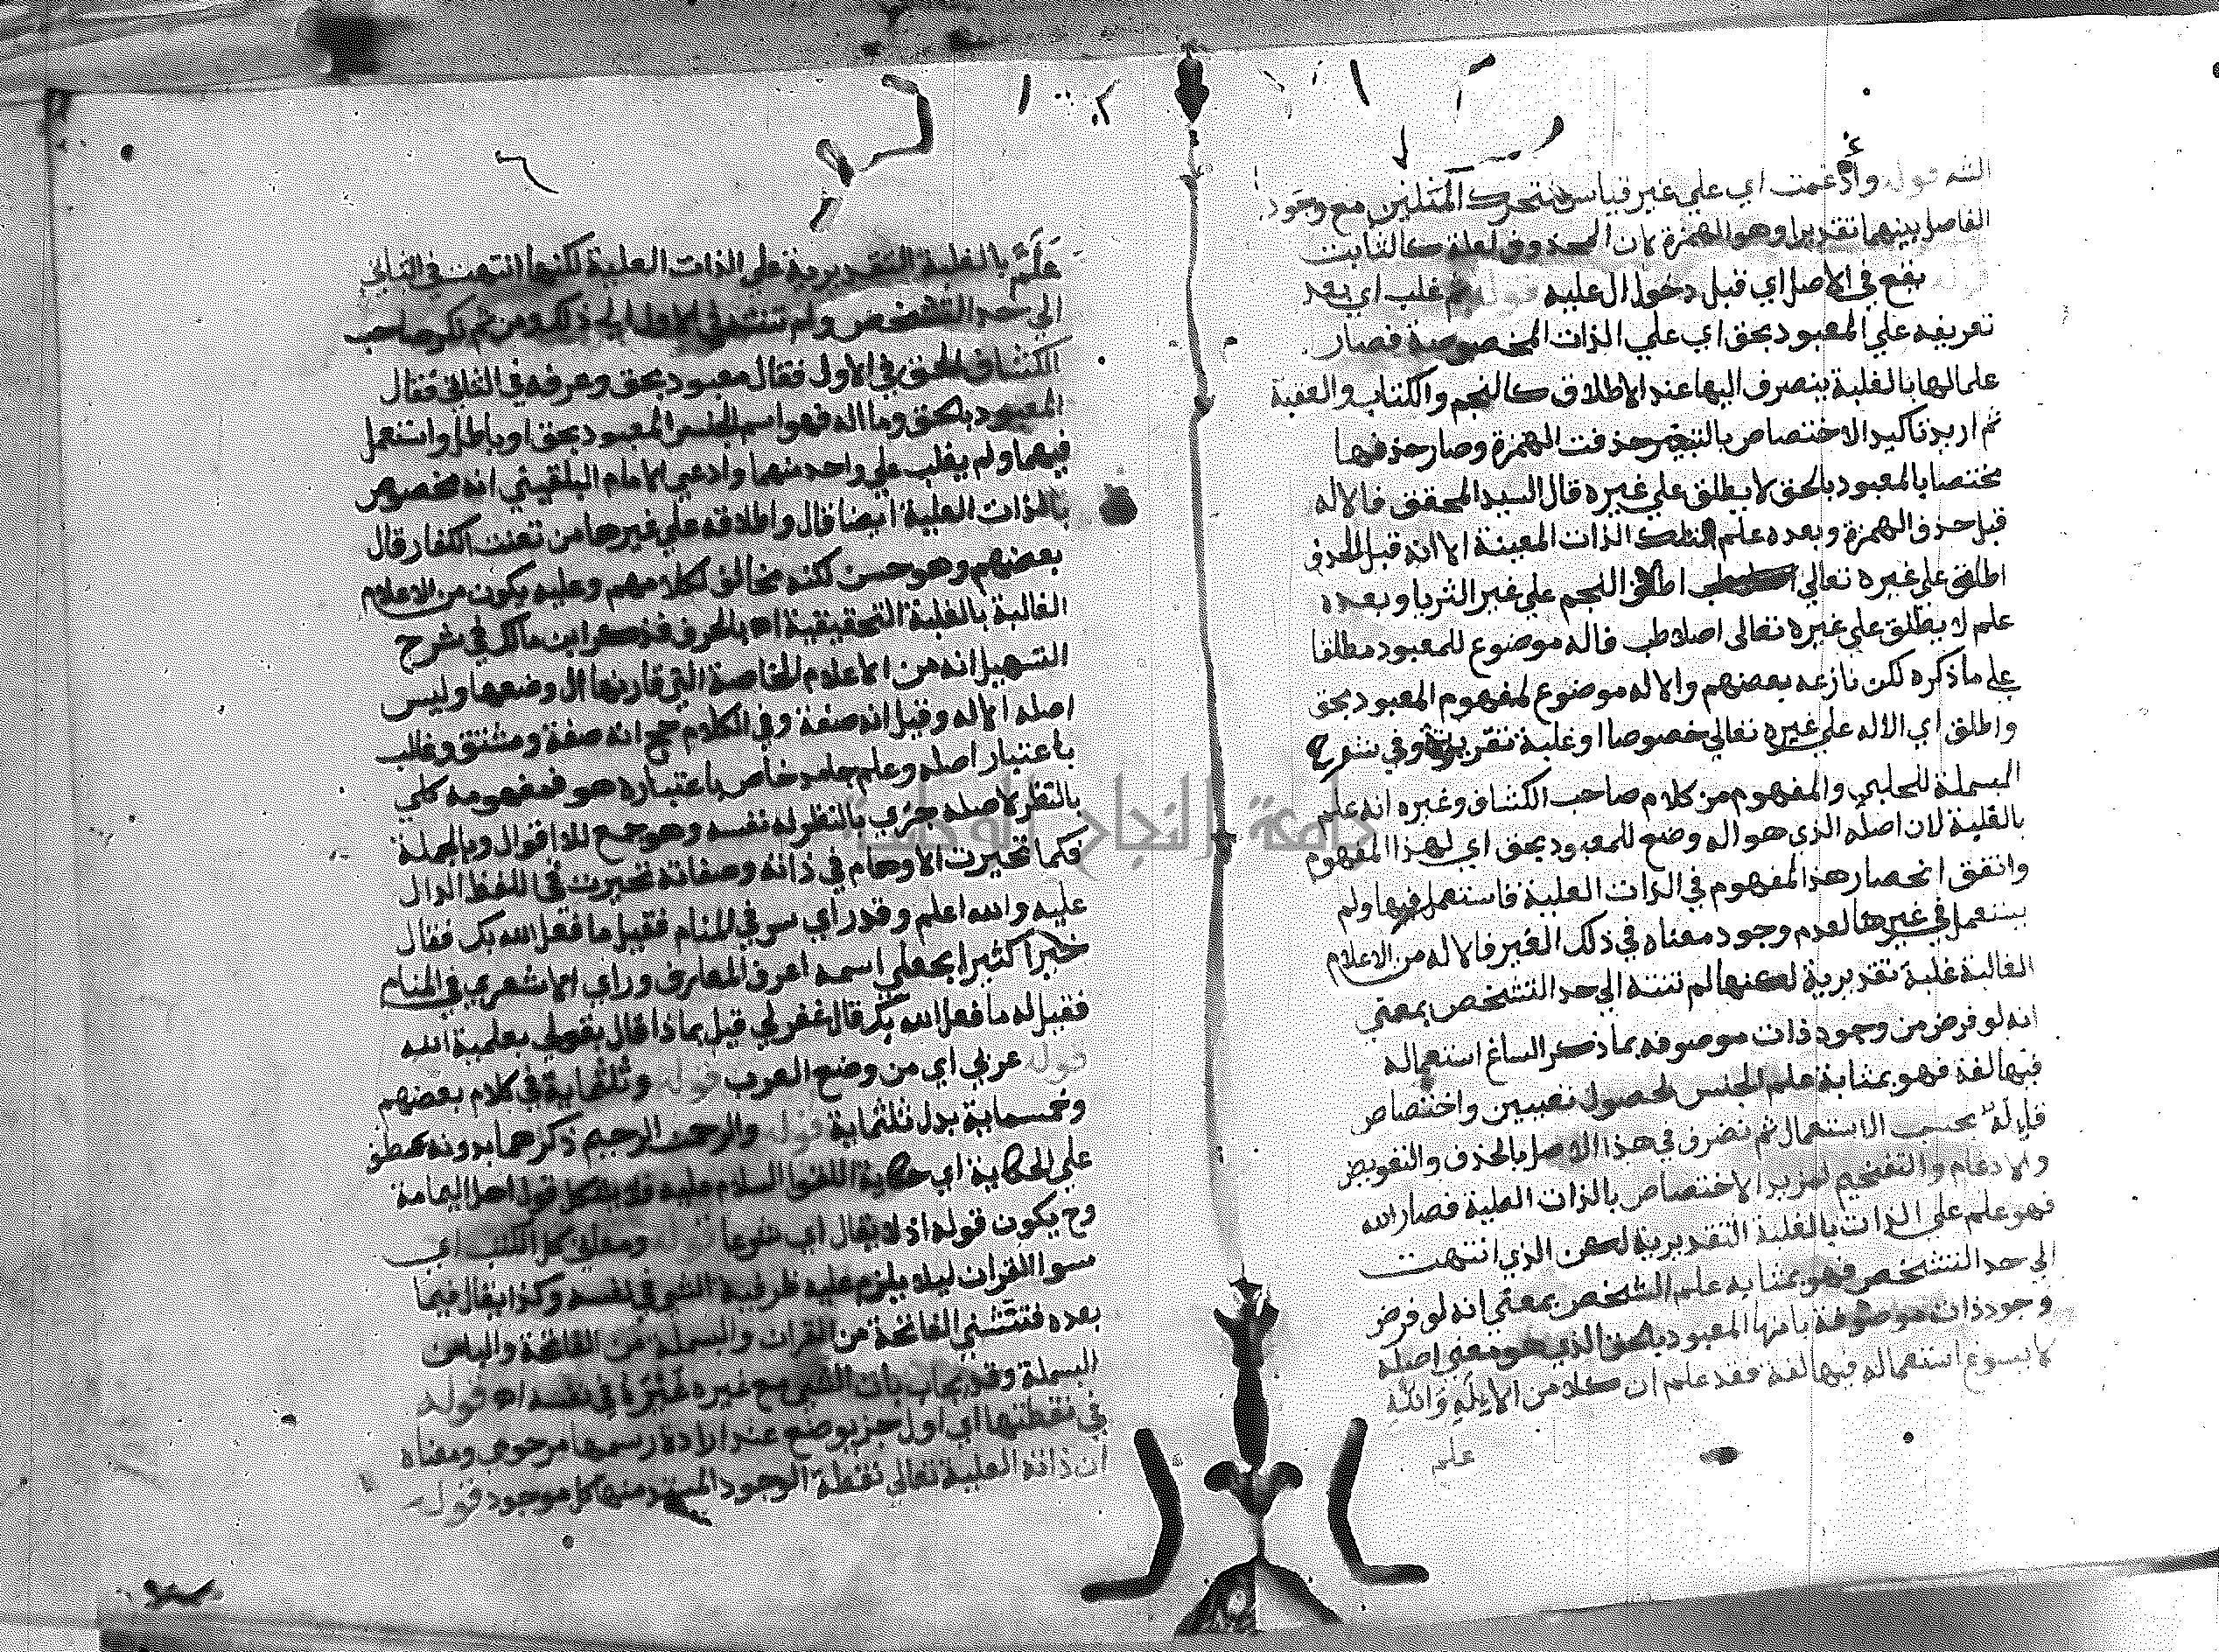 الله قوله وأدغمت اي علي غير قياس لتحرك المثلين مع وجود
الفاصل بينهما تقديرا وهو الهمزة لان المحذوف لعلة كالثابت
يقع في الاصل اي قبل دخول ال عليه قوله ثم غلب اي بعد
تعريفه علي المعبود بحق اي علي الذات المخصوصة فصار
علما لها بالغلبة ينصرف اليها عند الاطلاق كالنجم والكتاب والعقبة
ثم اريد تاكيد الاختصاص بالتغيير حذفت الهمزة وصار حذفها
مختصا بالمعبود بالحق لا يطلق علي غيره قال السيد المحقق فالاله
قبل حذف الهمزة وبعده علم لتلك الذات المعينة الا انه قبل الحذف
اطلق علي غيره تعالي اطلاق النجم علي غير الثريا وبعده
علم لا يطلق علي غيره تعالى اصلا طب فاله موضوع للمعبود مطلقا
علي ما ذكره لكن نازعه بعضهم والاله موضوع لمفهوم المعبود بحق
واطلق اي الاله علي غيره تعالي خصوصا او غلبة تقديرية وفي شرح
البسملة للحلبي والمفهوم من كلام صاحب الكشاف وغيره انه علم
بالغلبة لان اصله الذي هو اله وضع للمعبود بحق اي لهذا المفهوم
واتفق انحصار هذا المفهوم في الذات العلية فاستعمل فيها ولم
يستعمل في غيرها لعدم وجود معناه في ذلك الغير فالاله من الاعلام
الغالبة غلبة تقديرية لكنها لم تنته الي حد التشخص بمعني
انه لو فرض من وجود ذات موصوفه بما ذكر الساغ استعماله
فيها لغة فهو بمثابة علم الجنس لحصول تعيين واختصاص
قليلة بحسب الاستعمال ثم تصرف في هذا الاصل بالحذف والتعويض
والادغام والتفخيم لمزيد الاختصاص بالذات العلية فصار الله
فهو علم علي الذات بالغلبة التقديرية لكن الذي انتهت
الي حد التشخص فهو بمثابه علم الشخص بمعني انه لو فرض
وجود ذات موصوفة بانها المعبود بالحق الذي هو معني اصله
لا يسوغ استعماله فيها لغة فقد علم ان كلا من الإله والله
علم
علم بالغلبة التقديرية علي الذات العلية لكنها انتهت في الثاني
الي حد التشخص ولم تنته في الاول الي ذلك ومن ثم نكر صاحب
الكشاف الحق في الاول فقال معبود بحق وعرفه في الثاني فقال
المعبود بالحق وما اله فهو اسم الجنس المعبود بحق او باطل واستعمل
فيهما ولم يغلب علي واحد منهما وادعي الامام البلقيني انه مخصوص
بالذات العلية ايضا قال واطلاقه علي غيرها من تعنت الكفار قال
بعضهم وهو حسن لكنه مخالف لكلامهم وعليه يكون من الاعلام
الغالبة بالغلبة التحقيقية اه بالحرف فذكر ابن مالك في شرح
التسهيل انه من الاعلام الخاصة التي قارنها ال وضعها وليس
اصله الاله وقيل انه صفة وفي الكلام جمع انه صفة ومشتق وغالب
باعتبار اصله وعلم جامد خاص باعتباره هو فمفهومه كلي
بالنظر لاصله جزي بالنظر له نفسه وهو جمع للاقوال وبالجملة
فكما تحيرت الاوهام في ذاته وصفاته تحيرت في اللفظ الدال
عليه والله اعلم وقد راي سو في المنام فقيل ما فعل الله بك فقال
خيرا كثيرا بجعلي اسمه اعرف المعارف وراي الاشعري في المنام
فقيل له ما فعل الله بك قال غفر لي قيل بماذا قال بقولي بعلمية الله
قوله عربي اي من وضع العرب قوله وثلثماية في كلام بعضهم
وخمسماية بدل ثلثماية قوله والرحمن الرحيم ذكرهما بدون عطف
علي الحكاية اي حكاية قول اهل اليمامة
وح يكون قوله اذ لا يقال اي شرعا قوله ومعاني كل الكتب اي
سوا القران ليلا يلزم عليه ظرفية الشي في نفسه وكذا يقال فيما
بعده فتستثني الفاتحة من القران والبسملة من الفاتحة والبا من
البسملة وقد يجاب بان الشي مع غيره غيره في نفسه اه قوله
في نقطتها اي اول جز يوضع عند ارادة رسمها مرحومي ومعناه
ان ذاته العلية تعالي نقطة الوجود المستمد منها كل موجود قوله
جامعة النجاح الوطنية